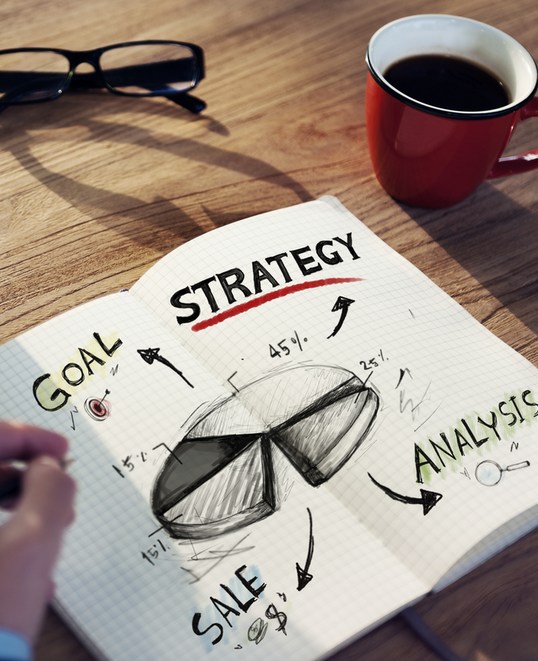 STRATEGY
GOAL
45%
25%
15%
ANALYSIS
15%
SALE
$